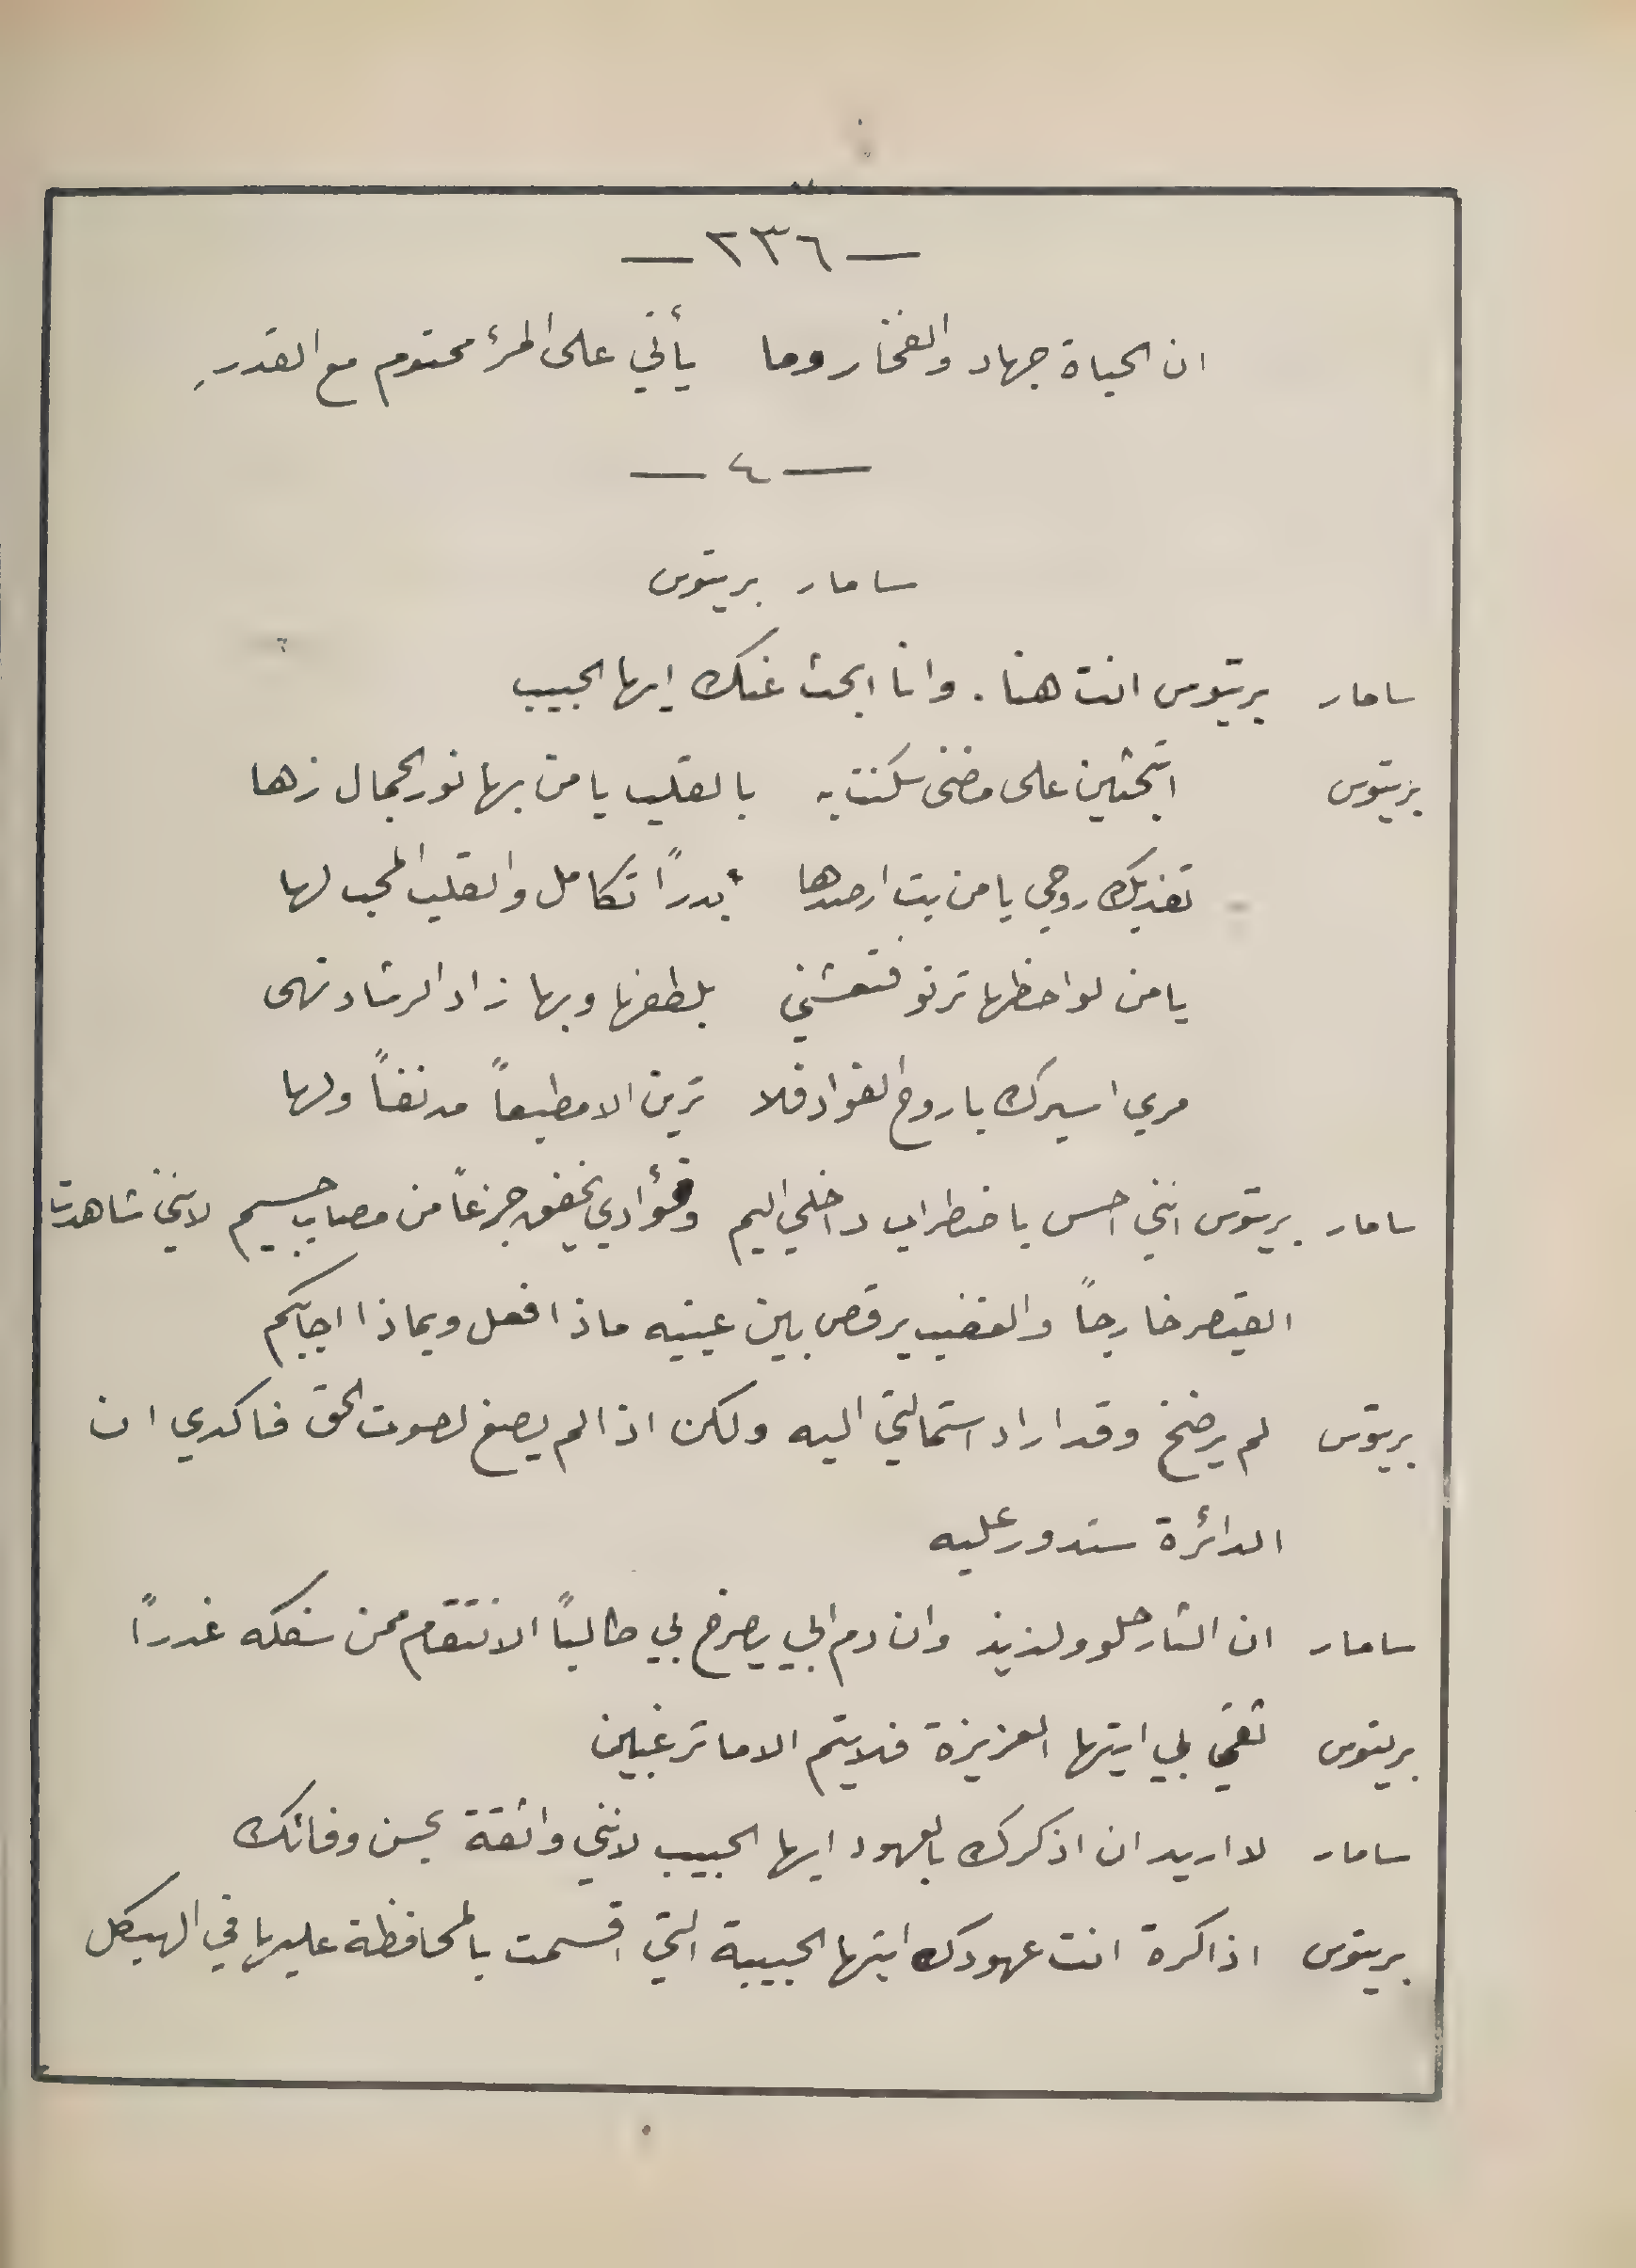 — ٢٣٦ —
ان الحياة جهاد والفخار وما يأتي على المرئ محتوم مع القدرِ
— ٤ —
سامار بريتوس
سامار بريتوس انت هنا . وانا ابحث عنك ايها الحبيب
بريتوس اتبحثين على مضنى سكنت به بالقلب يا من بها نور الجمال زها
تفديك روحي يا من بت ارصدها بدراً تكامل والقلب المحب لها
يا من لواحظها ترنو فتنعشني بلطفها وبها زاد الرشاد نهى
مري اسيرك يا روح الفواد فلا ترين الا مطيعاً مدنفاً ولها
سامار بريتوس انني احس باضطراب داخلي اليم وفؤادي يخفق جزعاً من مصاب جسيم لانني شاهدت
القيصر خارجاً والغضب يرقص بين عينيه ماذا فعل وبماذا اجابكم
بريتوس لم يرضخ وقد اراد استمالتي اليه ولكن اذا لم يصغ لصوت الحق فاكدي ان
الدائرة ستدور عليه
سامار ان الثار حلو ولذيذ وان دم ابي يصرخ بي طالباً الانتقام ممن سفكه غدراً
بريتوس ثقي بي ايتها العزيزة فلا يتم الا ما ترغبين
سامار لا اريد ان اذكرك بالعهود ايها الحبيب لانني واثقة بحسن وفائك
بريتوس اذاكرة انت عهودك ايتها الحبيبة التي اقسمت بالمحافظة عليها في الهيكل